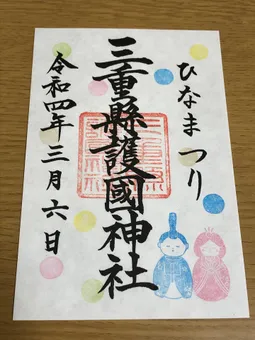 ひなまつり
三重縣護國神社
令和四年三月六日